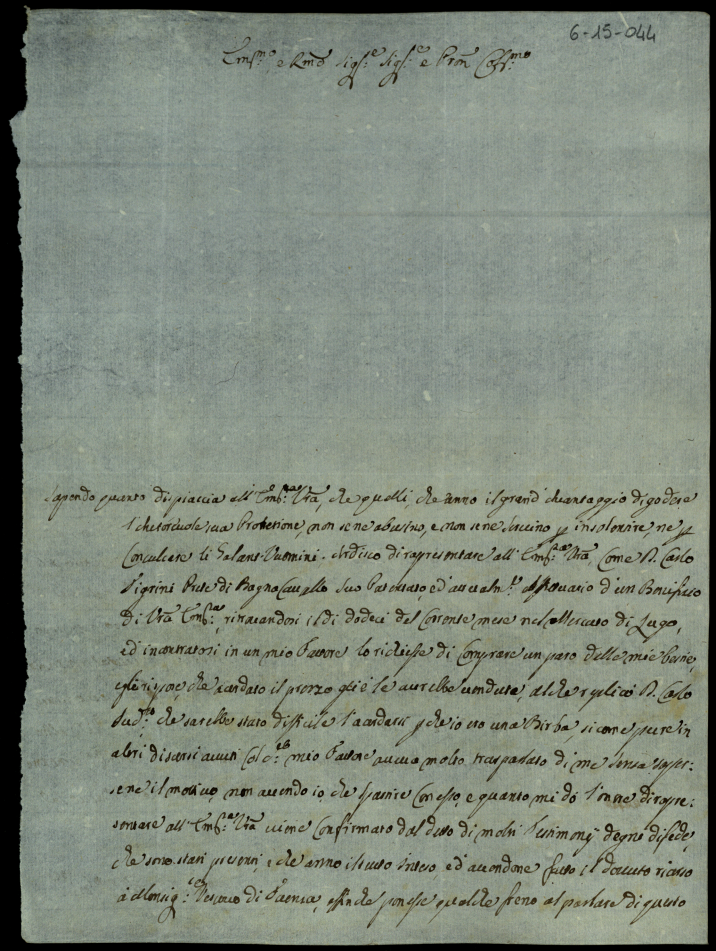 6-15-044
Em.mo e Rmo Sig.re Sig.re e Pron Col.mo
Sapendo quanto dispiaccia all'Em.za Vra, che quelli, che anno il grand'avantaggio di godere
sua Protetione, non se ne abusino, e non se ne servino p insolentire, ne p
Conculcare li Galant-Vuomini. Ardisco di rapresentare all'Em.za Vra, Come D. Carlo
Sigrini Prete di Bagna Cavallo Suo Patentato ed'attualm.te Affittuario d'un Beneficio
di Vra Em.za, ritrovandosi il di dodeci del Corente mese nel Mercato di Lugo,
ed incontratosi in un mio Fattore lo richiese di Comprare un paro delle mie bestie,
egli rispose, che acordato il prezzo gliele averebbe vendute, al che replicò D. Carlo
Sud.to che sarebbe stato dificile l'acordarsi p che io ero una Birba si come pure in
altri discorsi avuti Col d.to mio Fattore aveva molto trasparlato di me senza saper-
sene il motivo, non avendo io che spartire Con esso, e quanto mi dò l'onore di rapre-
sentare all'Em.za Vra viene Confirmato dal detto di molti Testimonij degni di fede,
che sono stati presenti, e che anno il tutto inteso ed'avendone fatto il dovuto ricorso
à Monsig.re Vescovo di Faenza, affinche ponesse qualche freno al parlare di questo